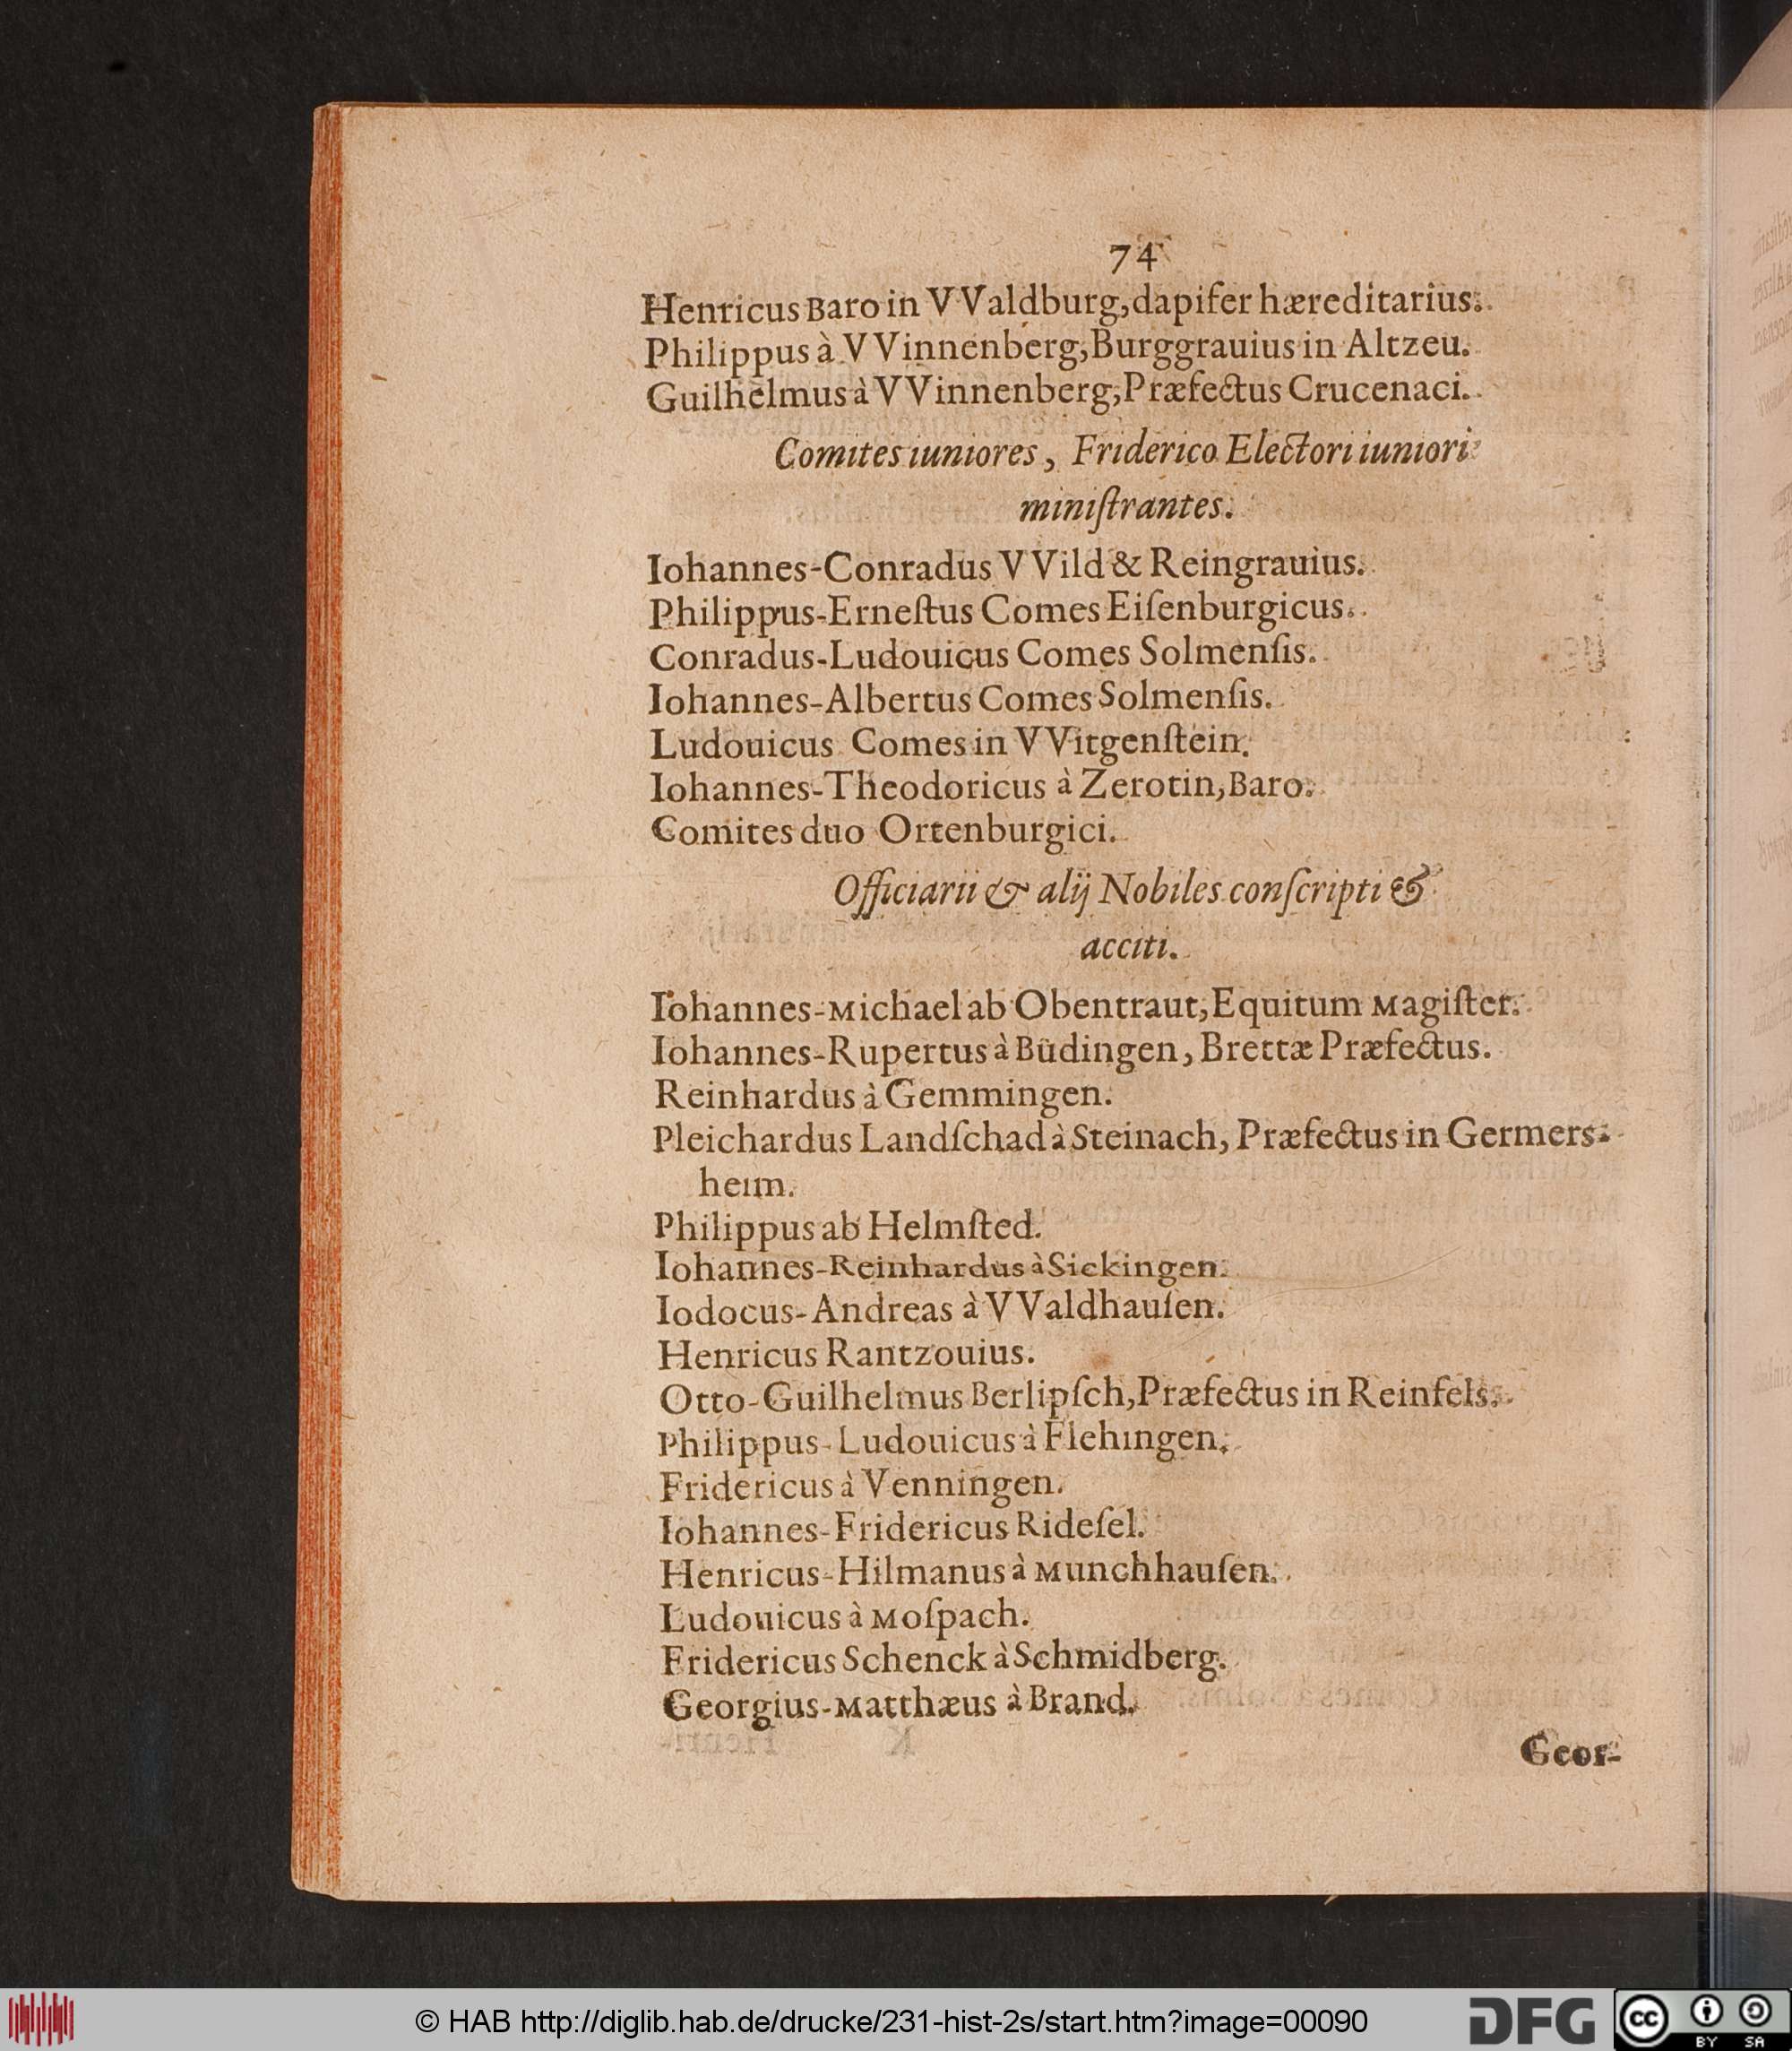 74
Henricus Baro in VValdburg, dapifer hæreditarius.
Philippus à VVinnenberg, Burggrauius in Altzeu.
Guilhelmus à VVinnenberg, Præfectus Crucenaci.
Comites iuniores, Friderico Electori iuniori
miniſtrantes.
Iohannes-Conradus VVild & Reingrauius.
Philippus-Erneſtus Comes Eiſenburgicus.
Conradus-Ludouicus Comes Solmenſis.
Iohannes-Albertus Comes Solmenſis.
Ludouicus Comes in VVitgenſtein.
Iohannes-Theodoricus à Zerotin, Baro.
Comites duo Ortenburgici.
Officiarii & alij Nobiles conſcripti &
acciti.
Iohannes-Michael ab Obentraut, Equitum Magiſter.
Iohannes-Rupertus à Büdingen, Brettæ Præfectus.
Reinhardus à Gemmingen.
Pleichardus Landſchad à Steinach, Præfectus in Germers-
heim.
Philippus ab Helmſted.
Iohannes-Reinhardus à Sickingen.
Iodocus-Andreas à VValdhauſen.
Henricus Rantzouius.
Otto-Guilhelmus Berlipſch, Præfectus in Reinfels.
Philippus-Ludouicus à Flehingen.
Fridericus à Venningen.
Iohannes-Fridericus Rideſel.
Henricus-Hilmanus à Munchhauſen.
Ludouicus à Moſpach.
Fridericus Schenck à Schmidberg.
Georgius-Matthæus à Brand.
Geor-
© HAB http://diglib.hab.de/drucke/231-hist-2s/start.htm?image=00090
DFG
cc BY SA